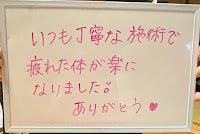 いつも丁寧な施術で
疲れた体が楽に
なりました。
ありがとう♥